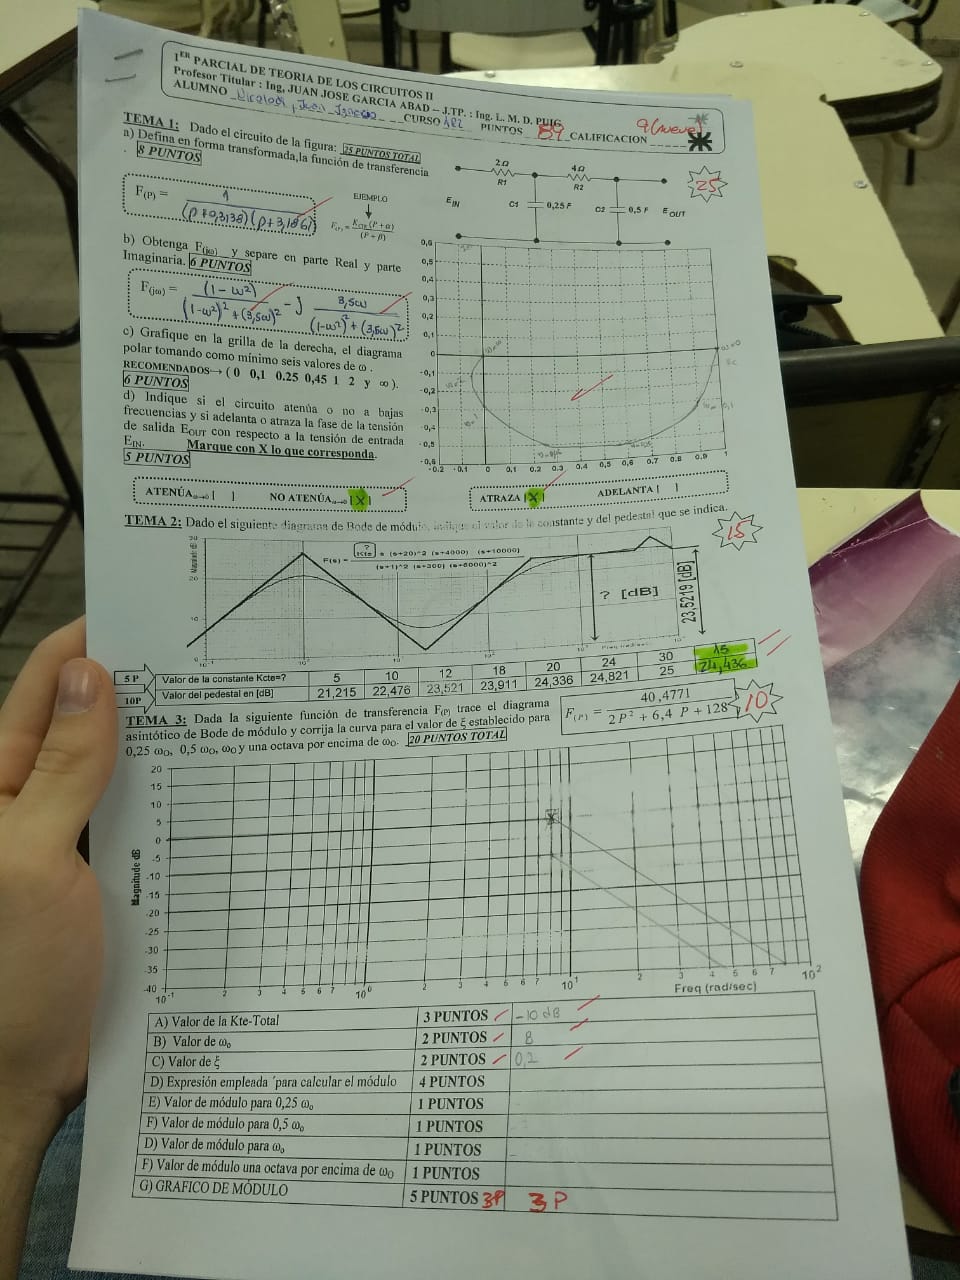 1ER PARCIAL DE TEORIA DE LOS CIRCUITOS II
Profesor Titular : Ing, JUAN JOSE GARCIA ABAD – J.TP. : Ing. L. M. D. PUIG
ALUMNO Juan Ignacio CURSO PUNTOS 89 CALIFICACION 9 (nueve)
TEMA 1: Dado el circuito de la figura: 25 PUNTOS TOTAL
a) Defina en forma transformada,la función de transferencia
8 PUNTOS
F(P) = 1 / (p+0,3138)(p+3,1861)
EJEMPLO
2Ω
R1
4Ω
R2
EIN
C1
0,25 F
C2
0,5 F
EOUT
25
b) Obtenga F(jω) y separe en parte Real y parte
Imaginaria. 6 PUNTOS
F(jω) = (1-ω²) / (1-ω²)² + (3,5ω)² - J 3,5ω / (1-ω²)² + (3,5ω)²
c) Grafique en la grilla de la derecha, el diagrama
polar tomando como mínimo seis valores de ω .
RECOMENDADOS→ ( 0 0,1 0.25 0,45 1 2 y ∞ ).
6 PUNTOS
d) Indique si el circuito atenúa o no a bajas
frecuencias y si adelanta o atraza la fase de la tensión
de salida EOUT con respecto a la tensión de entrada
EIN. Marque con X lo que corresponda.
5 PUNTOS
0,6
0,5
0,4
0,3
0,2
0,1
0
-0,1
-0,2
-0,3
-0,4
-0,5
-0,6
-0.2 -0.1 0 0,1 0.2 0.3 0.4 0,5 0,6 0.7 0.8 0.9 1
ATENÚAω→0 [ ] NO ATENÚAω→0 [X]
ATRAZA [X] ADELANTA [ ]
TEMA 2: Dado el siguiente diagrama de Bode de módulo, indique el valor de la constante y del pedestal que se indica.
15
F(s) = ? Kte * (s+20)^2 (s+4000) (s+10000)
(s+1)^2 (s+300) (s+6000)^2
? [dB]
23,5219 [dB]
5 P Valor de la constante Kcte=? 5 10 12 18 20 24 30 15
10P Valor del pedestal en [dB] 21,215 22,476 23,521 23,911 24,336 24,821 25 24,436
TEMA 3: Dada la siguiente función de transferencia F(P) trace el diagrama
asintótico de Bode de módulo y corrija la curva para el valor de ξ establecido para
0,25 ω0, 0,5 ω0, ω0 y una octava por encima de ω0. 20 PUNTOS TOTAL
F(P) = 40,4771
2 P² + 6,4 P + 128
10
20
15
10
5
0
-5
-10
-15
-20
-25
-30
-35
-40
Magnitude dB
10-1 2 3 4 5 6 7 100 2 3 4 5 6 7 101 2 3 4 5 6 7 102
Freq (rad/sec)
A) Valor de la Kte-Total 3 PUNTOS -10 dB
B) Valor de ω0 2 PUNTOS 8
C) Valor de ξ 2 PUNTOS 0,2
D) Expresión empleada ´para calcular el módulo 4 PUNTOS
E) Valor de módulo para 0,25 ω0 1 PUNTOS
F) Valor de módulo para 0,5 ω0 1 PUNTOS
D) Valor de módulo para ω0 1 PUNTOS
F) Valor de módulo una octava por encima de ωO 1 PUNTOS
G) GRAFICO DE MÓDULO 5 PUNTOS 3P 3P